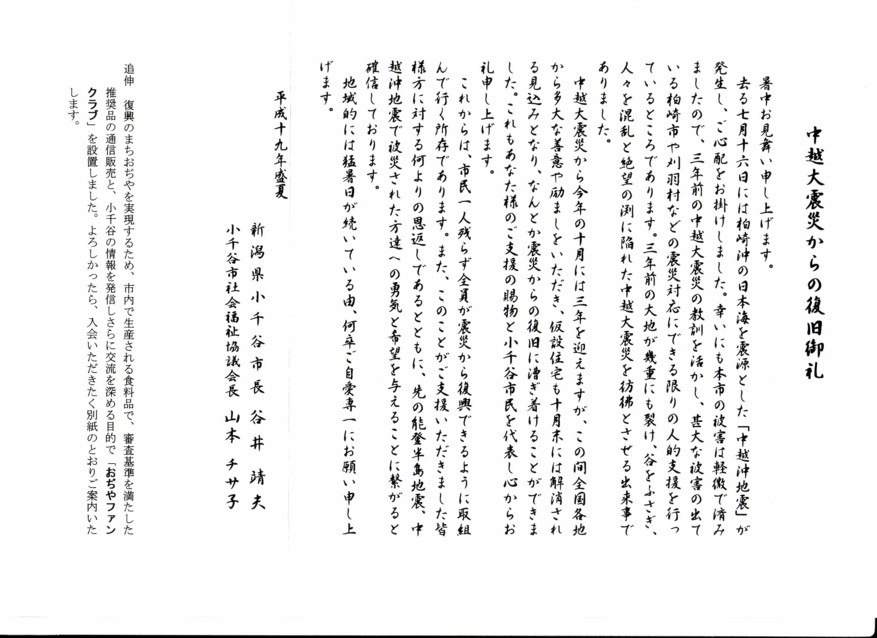 中越大震災からの復旧御礼
暑中お見舞い申し上げます。
去る七月十六日には柏崎沖の日本海を震源とした「中越沖地震」が
発生し、ご心配をお掛けしました。幸いにも本市の被害は軽微で済み
ましたので、三年前の中越大震災の教訓を活かし、甚大な被害の出て
いる柏崎市や刈羽村などの震災対応にできる限りの人的支援を行っ
ているところであります。三年前の大地が幾重にも裂け、谷をふさぎ、
人々を混乱と絶望の渕に陥れた中越大震災を彷彿とさせる出来事で
ありました。
中越大震災から今年の十月には三年を迎えますが、この間全国各地
から多大な善意や励ましをいただき、仮設住宅も十月末には解消され
る見込みとなり、なんとか震災からの復旧に漕ぎ着けることができま
した。これもあなた様のご支援の賜物と小千谷市民を代表し心からお
礼申し上げます。
これからは、市民一人残らず全員が震災から復興できるように取組
んで行く所存であります。また、このことがご支援いただきました皆
様方に対する何よりの恩返しであるとともに、先の能登半島地震、中
越沖地震で被災された方達への勇気と希望を与えることに繋がると
確信しております。
地域的には猛暑日が続いている由、何卒ご自愛専一にお願い申し上
げます。
平成十九年盛夏
新潟県小千谷市長 谷井靖夫
小千谷市社会福祉協議会長 山本チサ子
追伸 復興のまちおぢやを実現するため、市内で生産される食料品で、審査基準を満たした
推奨品の通信販売と、小千谷の情報を発信しさらに交流を深める目的で「おぢやファン
クラブ」を設置しました。よろしかったら、入会いただきたく別紙のとおりご案内いた
します。